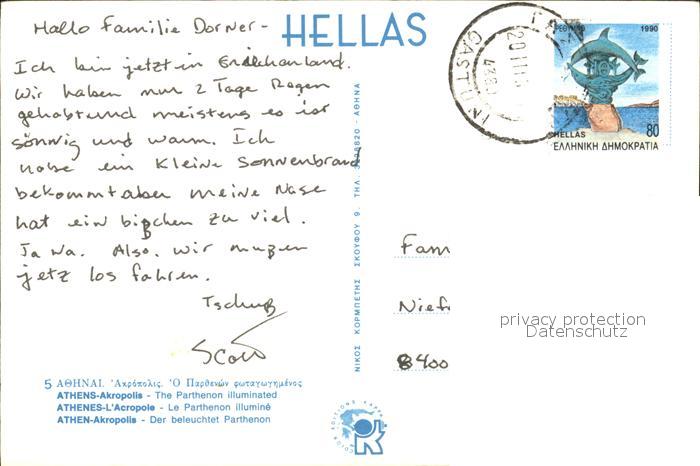 Hallo Familie Dorner -
HELLAS
Ich bin jetzt in Griechanland.
Wir haben nur 2 Tage Regen
gehabt und meistens es ist
sönnig und warm. Ich
habe ein kleine Sonnenbrand
bekommt aber meine Nase
hat ein bißchen zu viel.
Ja Na. Also, wir mußen
jetz los fahren.
Tschuß
Scott
5 ΑΘΗΝΑΙ. Ἀκρόπολις. Ὁ Παρθενών φωταγωγημένος
ATHENS-Akropolis - The Parthenon illuminated
ATHENES-L'Acropole - Le Parthenon illuminé
ATHEN-Akropolis - Der beleuchtet Parthenon
ΝΙΚΟΣ ΚΟΡΜΠΕΤΗΣ ΣΚΟΥΦΟΥ 9. ΤΗΛ. ΑΘΗΝΑ
1990
HELLAS 80
ΕΛΛΗΝΙΚΗ ΔΗΜΟΚΡΑΤΙΑ
Fam
Nief
8400
privacy protection
Datenschutz